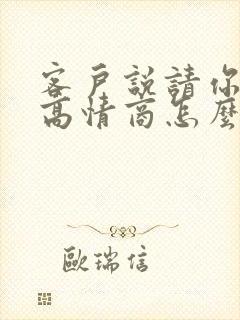 客戶說請你
高情商怎麼
歐瑞信